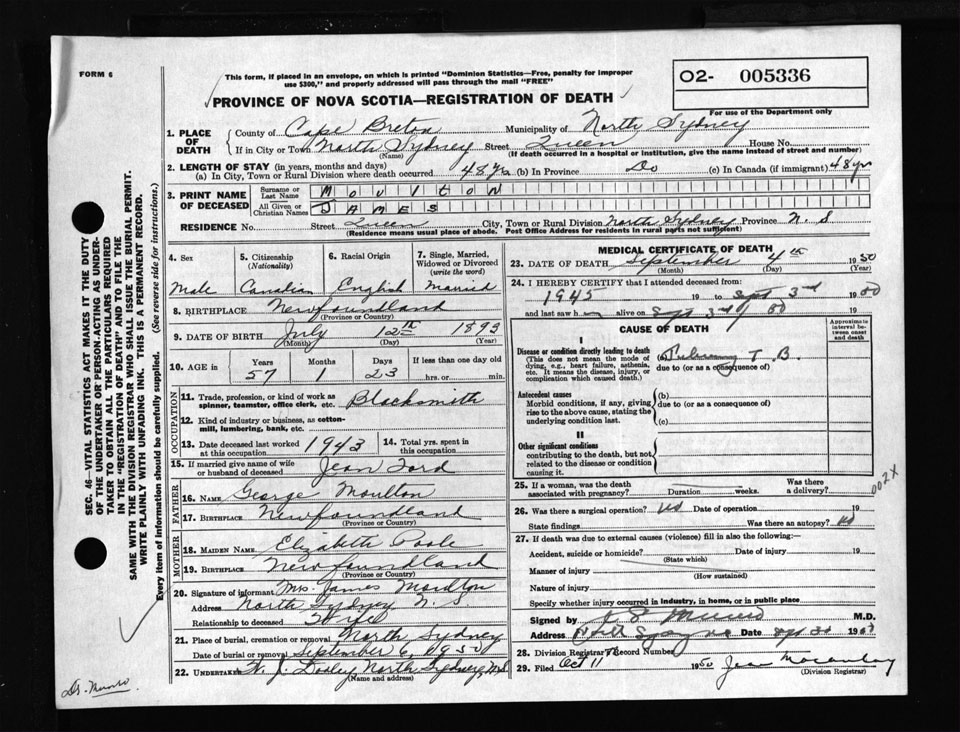 FORM 6
This form, if placed in an envelope, on which is printed "Dominion Statistics—Free, penalty for improper
use $300," and properly addressed will pass through the mail "FREE"
O2- 005336
For use of the Department only
PROVINCE OF NOVA SCOTIA—REGISTRATION OF DEATH
1. PLACE OF DEATH County of Cape Breton Municipality of North Sydney
If in City or Town North Sydney Street Queen House No.
(Name) (If death occurred in a hospital or institution, give the name instead of street and number)
2. LENGTH OF STAY (in years, months and days)
(a) In City, Town or Rural Division where death occurred 48 yrs (b) In Province Do (c) In Canada (if immigrant) 48 yr
3. PRINT NAME OF DECEASED Surname or Last Name MOULTON
All Given or Christian Names JAMES
RESIDENCE No. Street Queen City, Town or Rural Division North Sydney Province N. S
(Residence means usual place of abode. Post Office Address for residents in rural parts not sufficient)
4. Sex 5. Citizenship (Nationality) 6. Racial Origin 7. Single, Married, Widowed or Divorced (write the word)
Male Canadian English Married
8. BIRTHPLACE Newfoundland
(Province or Country)
9. DATE OF BIRTH July 12th 1893
(Month) (Day) (Year)
10. AGE in Years Months Days If less than one day old
57 1 23 hrs. or min.
OCCUPATION
11. Trade, profession, or kind of work as spinner, teamster, office clerk, etc. Blacksmith
12. Kind of industry or business, as cotton-mill, lumbering, bank, etc.
13. Date deceased last worked at this occupation 1943 14. Total yrs. spent in this occupation
15. If married give name of wife or husband of deceased Jean Ford
FATHER
16. Name George Moulton
17. BIRTHPLACE Newfoundland
(Province or Country)
MOTHER
18. MAIDEN NAME Elizabeth Poole
19. BIRTHPLACE Newfoundland
(Province or Country)
20. Signature of informant Mrs. James Moulton
Address North Sydney N. S.
Relationship to deceased Wife
21. Place of burial, cremation or removal North Sydney
Date of burial or removal September 6, 1950
22. UNDERTAKER North Sydney, N.S.
(Name and address)
MEDICAL CERTIFICATE OF DEATH
23. DATE OF DEATH September 4th 1950
(Month) (Day) (Year)
24. I HEREBY CERTIFY that I attended deceased from:
1945 19 to Sept 3rd 1950
and last saw h alive on Sept 3rd / 50
CAUSE OF DEATH
Approximate interval between onset and death
I
Disease or condition directly leading to death
(This does not mean the mode of dying, e.g., heart failure, asthenia, etc. It means the disease, injury, or complication which caused death.)
(a) Pulmonary T. B.
due to (or as a consequence of)
Antecedent causes
Morbid conditions, if any, giving rise to the above cause, stating the underlying condition last.
(b)
due to (or as a consequence of)
(c)
II
Other significant conditions
contributing to the death, but not related to the disease or condition causing it.
002X
25. If a woman, was the death associated with pregnancy? Duration weeks. Was there a delivery?
26. Was there a surgical operation? no Date of operation 19
State findings Was there an autopsy? no
27. If death was due to external causes (violence) fill in also the following:—
Accident, suicide or homicide? Date of injury 19
(State which)
Manner of injury
(How sustained)
Nature of injury
Specify whether injury occurred in industry, in home, or in public place
Signed by M.D.
Address Date 19
28. Division Registrar's Record Number
29. Filed Oct 11 1950
(Division Registrar)
SEC. 46—VITAL STATISTICS ACT MAKES IT THE DUTY
OF THE UNDERTAKER OR PERSON ACTING AS UNDER-
TAKER TO OBTAIN ALL THE PARTICULARS REQUIRED
IN THE "REGISTRATION OF DEATH" AND TO FILE THE
SAME WITH THE DIVISION REGISTRAR WHO SHALL ISSUE THE BURIAL PERMIT.
WRITE PLAINLY WITH UNFADING INK. THIS IS A PERMANENT RECORD.
Every item of information should be carefully supplied. (See reverse side for instructions.)
Dr. Munro